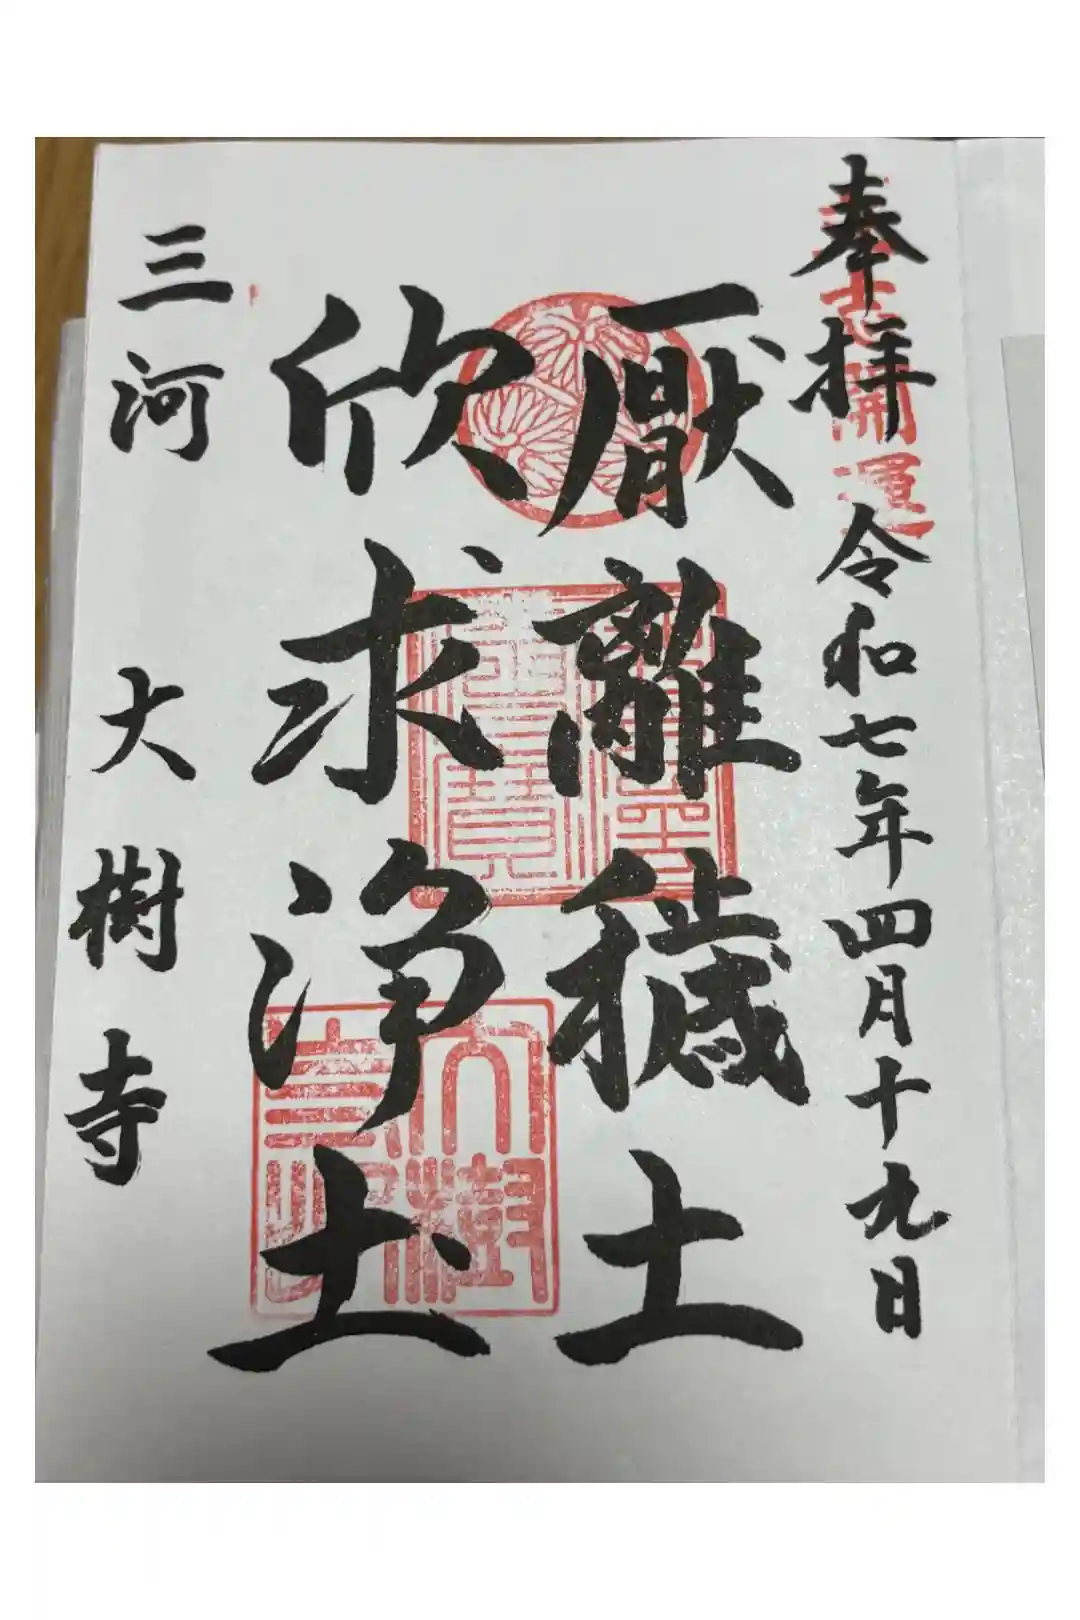 奉拝 令和七年四月十九日
厭離穢土
欣求浄土
三河 大樹寺
開運